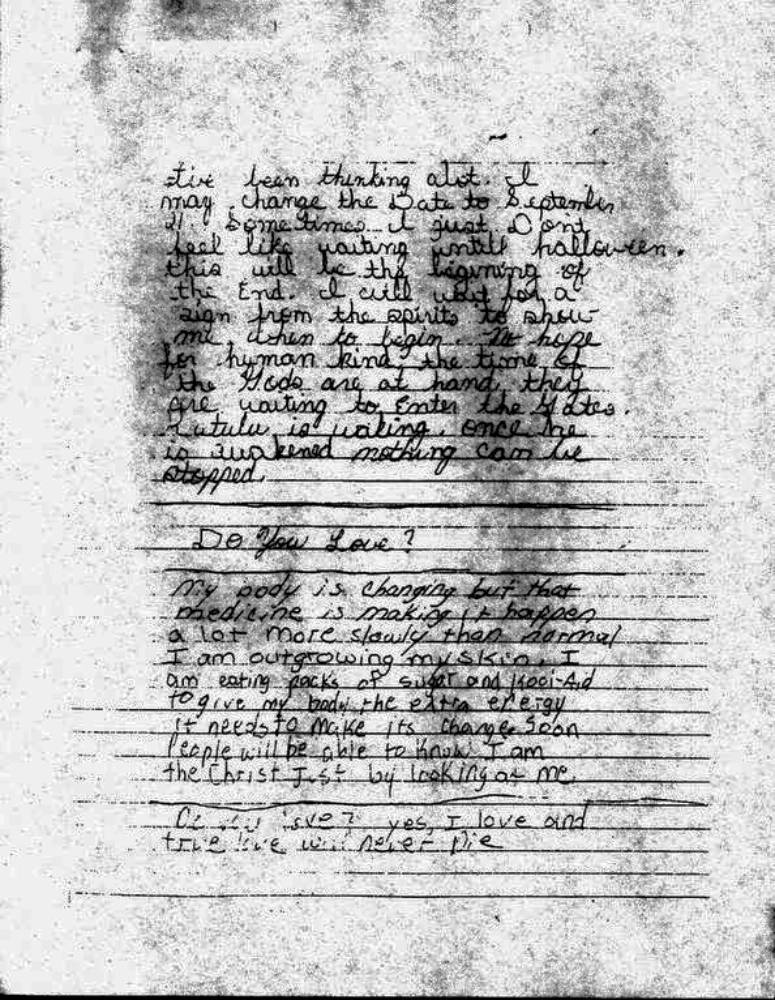 I've been thinking alot. I
may change the Date to September
21. Some times I just Don't
feel like waiting untill halloween.
this will be the begining of
the End. I will wait for a
sign from the spirits to show
me when to begin. No hope
for human kind, the time of
the Gods are at hand, they
are waiting to Enter the Gates.
Kutulu is waiting. once he
is awakened nothing can be
stopped.
Do You Love?
My body is changing but that
medicine is making it happen
a lot more slowly than normal
I am outgrowing my skin. I
am eating packs of sugar and Kool-Aid
to give my body the extra energy
it needs to make its change. Soon
People will be able to know I am
the Christ Just by looking at me.
Do you love? yes, I love and
true love will never Die